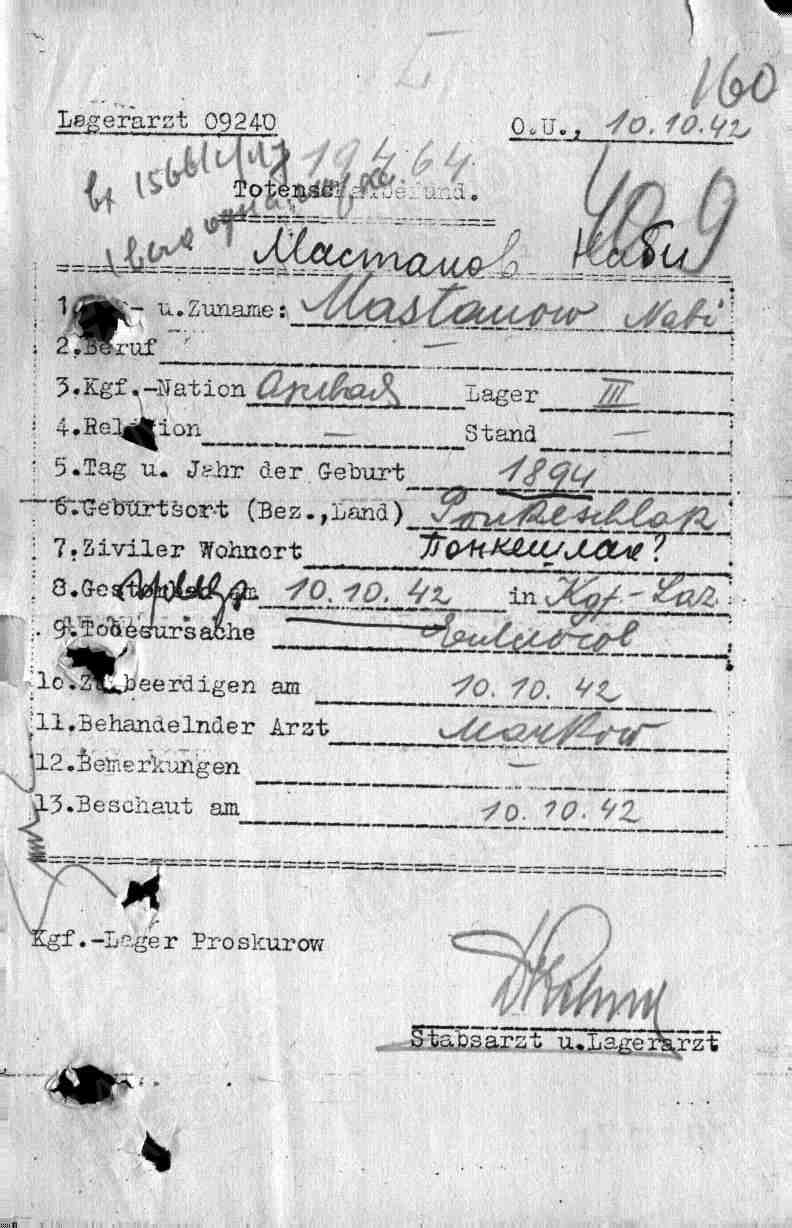 160
Lagerarzt 09240
O.U., 10.10.42
19 7. 64
Totenschaubefund.
409
Мастанов Наби
1. - u.Zuname: Mastanow Nabi
2.Beruf —
3.Kgf.-Nation Lager III
4.Religion — Stand —
5.Tag u. Jahr der Geburt 1894
6.Geburtsort (Bez.,Land) Ponkeschlak
7.Ziviler Wohnort Понкешлак?
8.Gestorben am 10.10.42 in Kgf-Laz
9.Todesursache
10.Zu beerdigen am 10.10.42
11.Behandelnder Arzt Markow
12.Bemerkungen —
13.Beschaut am 10.10.42
Kgf.-Lager Proskurow
Stabsarzt u.Lagerarzt